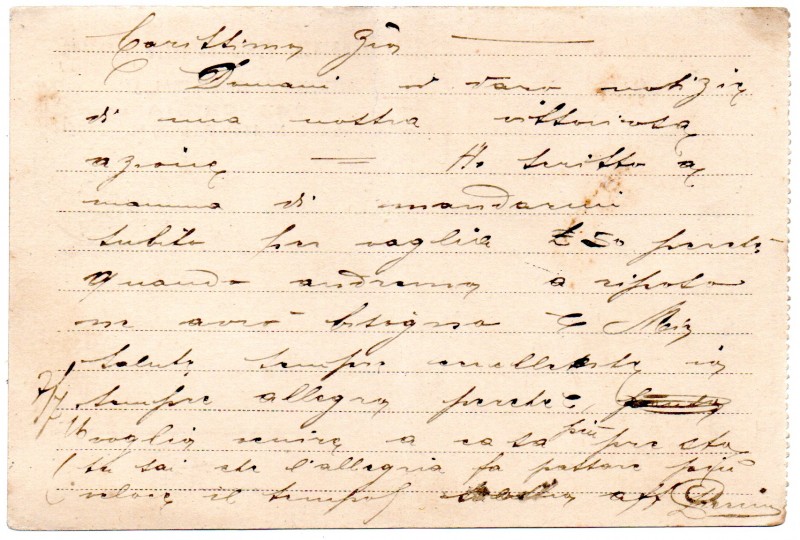 Carissima Zia
Domani vi darò notizie
di una nostra vittoriosa
azione = Ho scritto a
mamma di mandarmi
subito per vaglia £ 50 perchè
quando andremo a riposo
ne avrò bisogno La Mia
salute sempre eccellente io
sempre allegro perchè
voglio venire a casa più presto
tu sai che l'allegria fa passare più
veloce il tempo aff